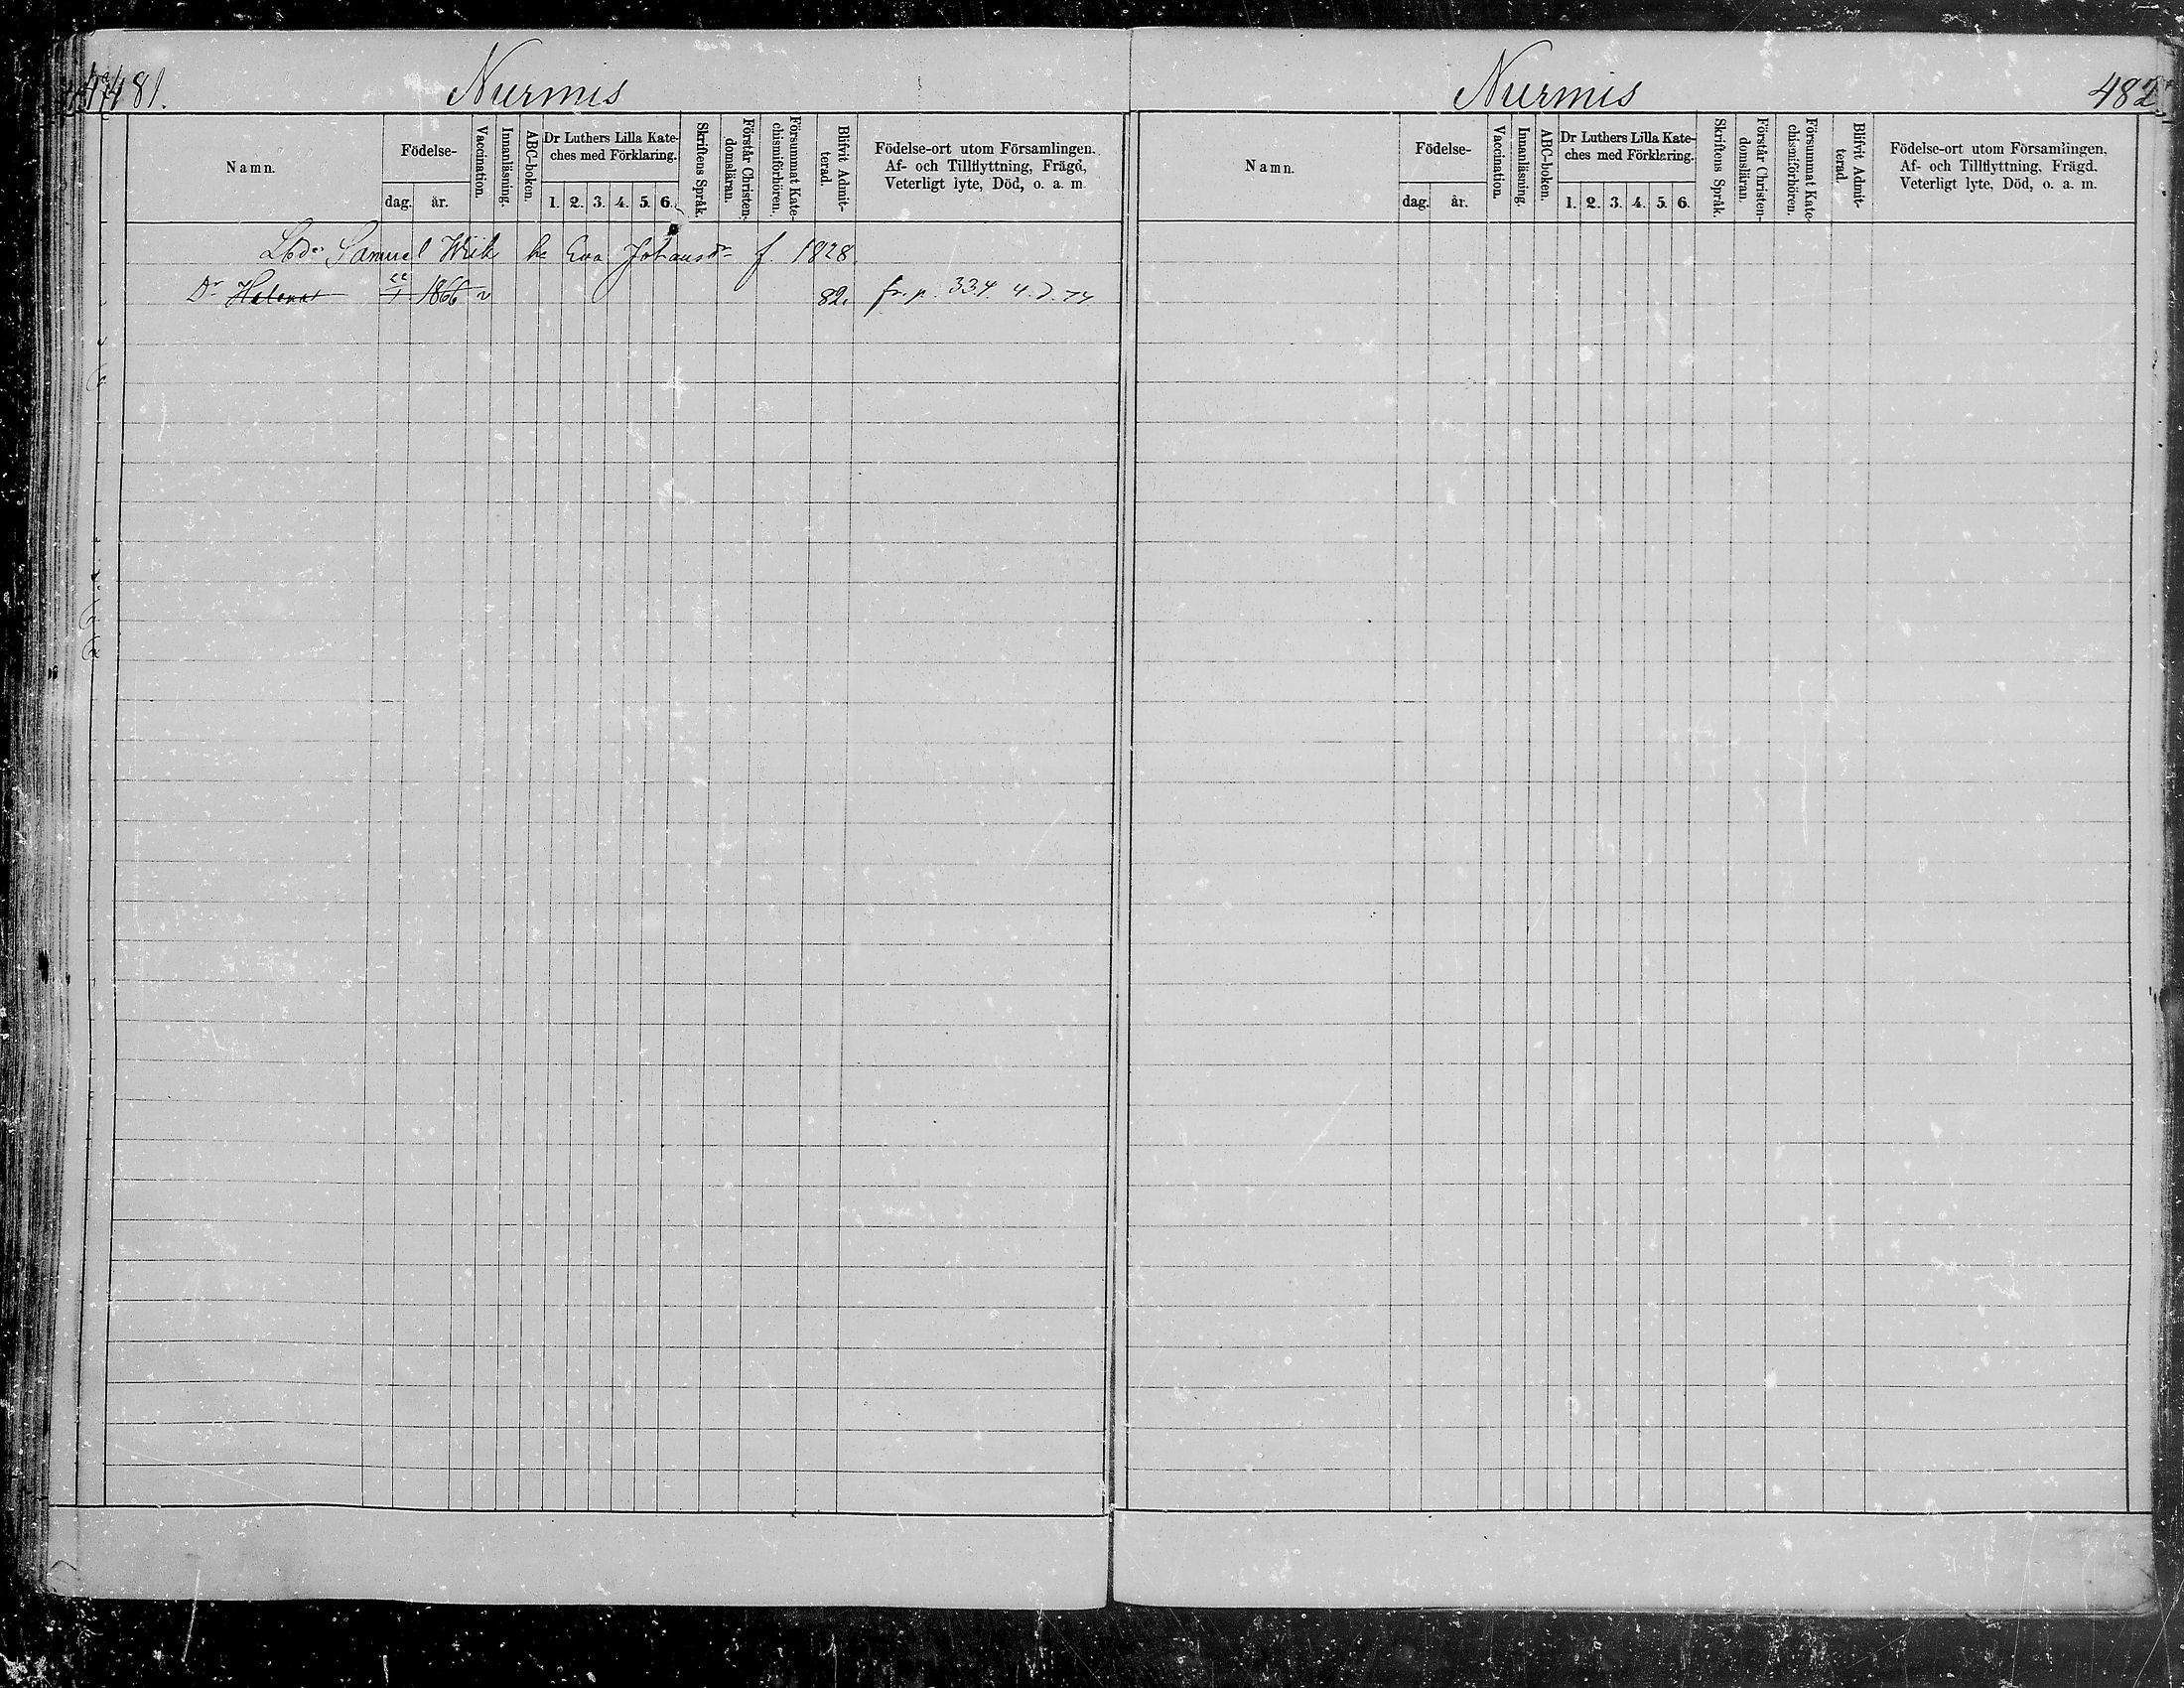 481.
Nurmis
Namn.
Födelse-
dag. år.
Vaccination.
Innanläsning.
ABC-boken.
Dr Luthers Lilla Kate-
ches med Förklaring.
1. 2. 3. 4. 5. 6.
Skriftens Språk.
Förstår Christen-
domsläran.
Försummat Kate-
chismiförhören.
Blifvit Admit-
terad.
Födelse-ort utom Församlingen.
Af- och Tillflyttning, Frägd,
Veterligt lyte, Död, o. a. m
Samuel Wiik Eva Johansdr f. 1828.
Dr Helena 1866 v 82. fr. p. 334.
Nurmis
482
Namn.
Födelse-
dag. år.
Vaccination.
Innanläsning.
ABC-boken.
Dr Luthers Lilla Kate-
ches med Förklaring.
1. 2. 3. 4. 5. 6.
Skriftens Språk.
Förstår Christen-
domsläran.
Försummat Kate-
chismiförhören.
Blifvit Admit-
terad.
Födelse-ort utom Församlingen.
Af- och Tillflyttning, Frägd.
Veterligt lyte, Död, o. a. m.